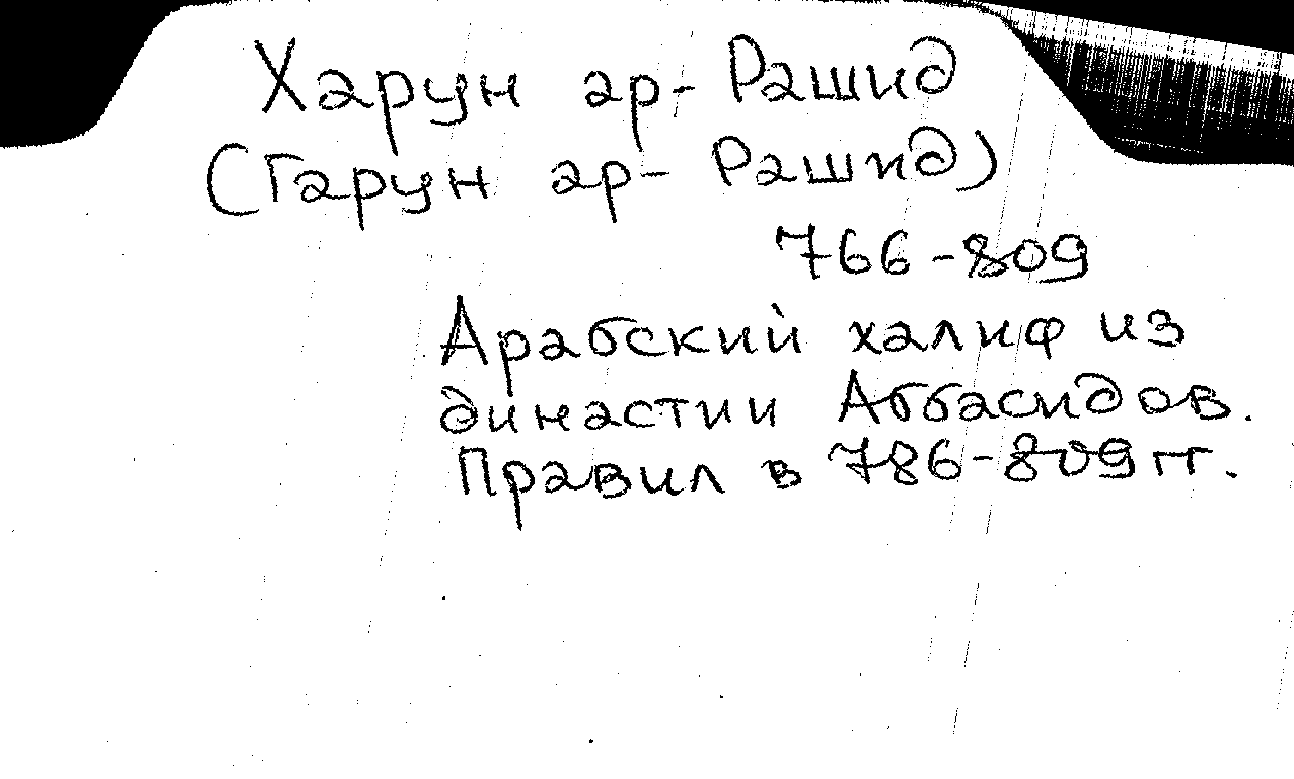 Харун ар-Рашид
(Гарун ар-Рашид)
766-809
Арабский халиф из
династии Аббасидов.
Правил в 786-809 гг.